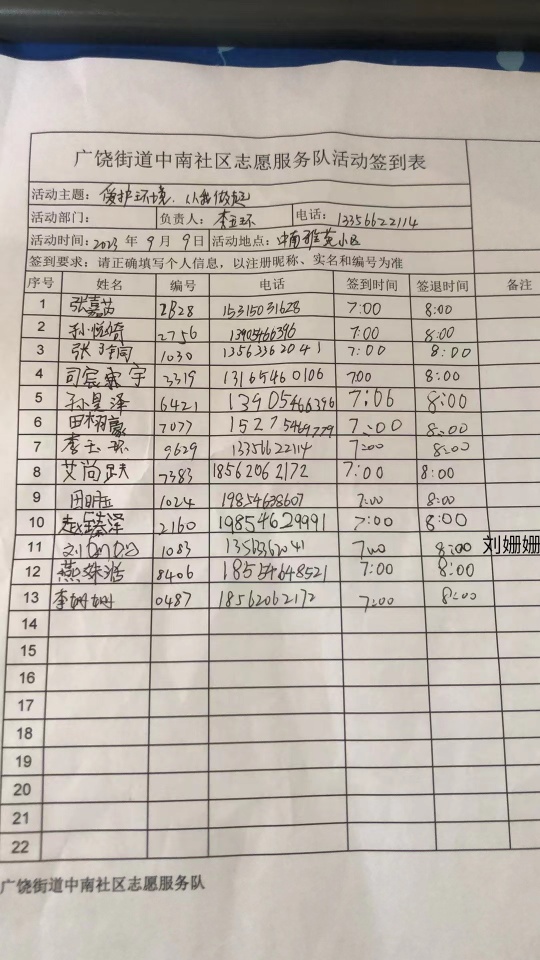 广饶街道中南社区志愿服务队活动签到表
活动主题：爱护环境，从我做起
活动部门： 负责人：李玉环 电话：13356622114
活动时间：2023 年 9 月 9 日 活动地点：中南雅苑小区
签到要求：请正确填写个人信息，以注册昵称、实名和编号为准
序号 姓名 编号 电话 签到时间 签退时间 备注
1 张嘉苗 2828 15315031628 7:00 8:00
2 孙悦绮 2756 13905466396 7:00 8:00
3 张 同 1030 13563362041 7:00 8:00
4 司宸 宇 3319 13165460106 7:00 8:00
5 孙昊泽 6421 13905466396 7:06 8:00
6 田栩豪 7077 15275469779 7:00 8:00
7 李玉环 9629 13356622114 7:00 8:00
8 艾尚 7383 18562062172 7:00 8:00
9 田明 1024 19854638607 7:00 8:00
10 赵臻泽 2160 19854629991 7:00 8:00
11 刘姗姗 1083 13563362041 7:00 8:00 刘姗姗
12 燕姝 8406 18554648521 7:00 8:00
13 李姗姗 0487 18562062172 7:00 8:00
14
15
16
17
18
19
20
21
22
广饶街道中南社区志愿服务队